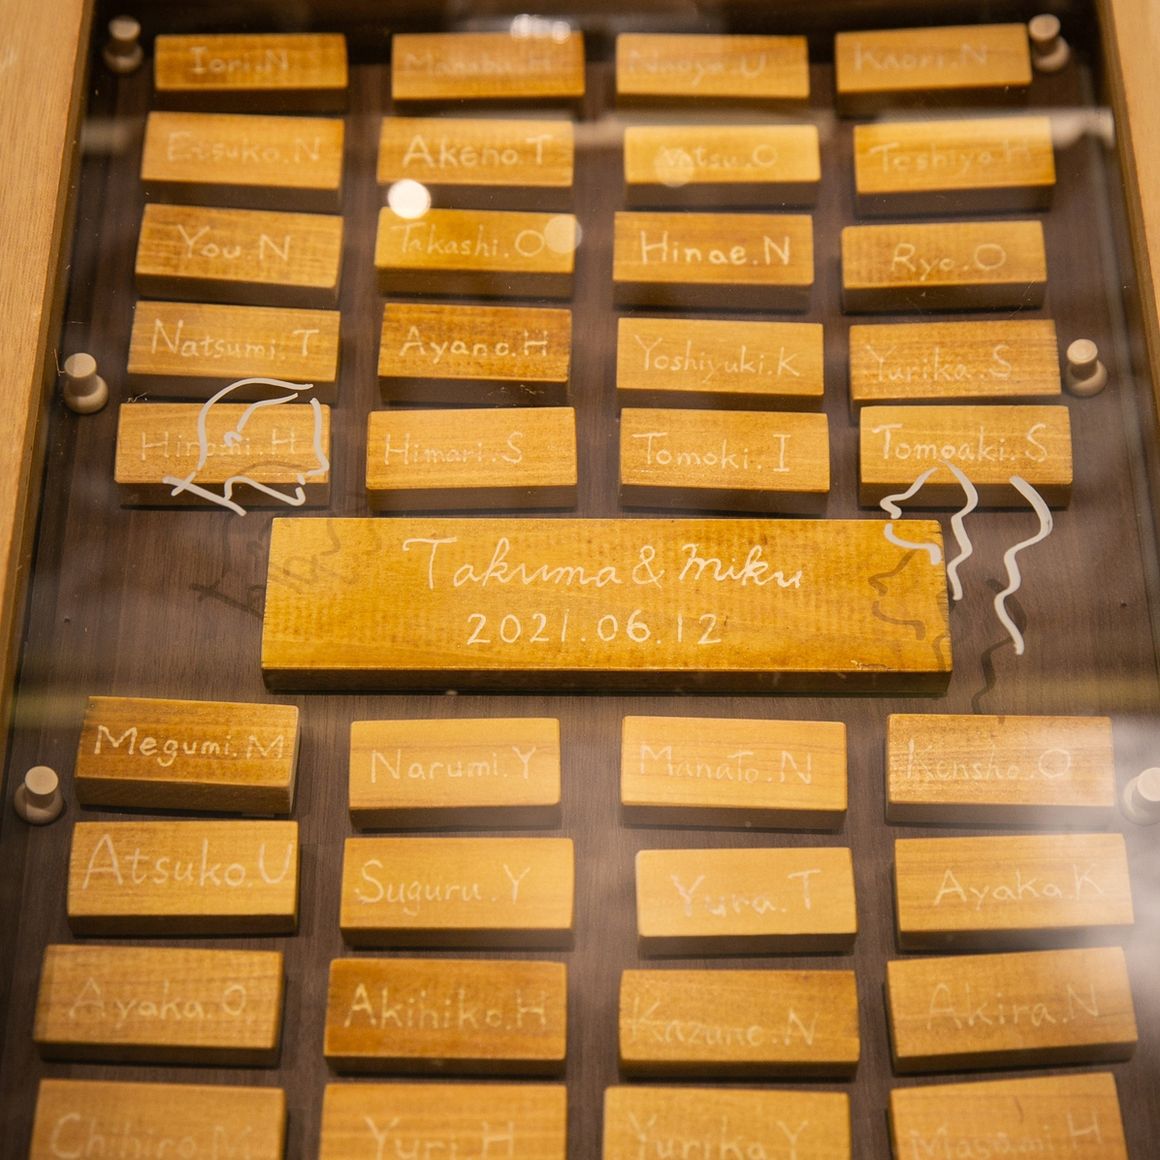 Iori.N Manabu.H Naoya.U Kaori.N
Etsuko.N Akeno.T Yatsu.O Toshiya.H
You.N Takashi.O Hinae.N Ryo.O
Natsumi.T Ayano.H Yoshiyuki.K Yurika.S
Hiromi.H Himari.S Tomoki.I Tomoaki.S
Takuma & Miku
2021.06.12
Megumi.M Narumi.Y Manato.N Kensho.O
Atsuko.U Suguru.Y Yura.T Ayaka.K
Ayaka.O Akihiko.H Kazune.N Akira.N
Chihiro.M Yuri.H Yurika.Y Masami.H